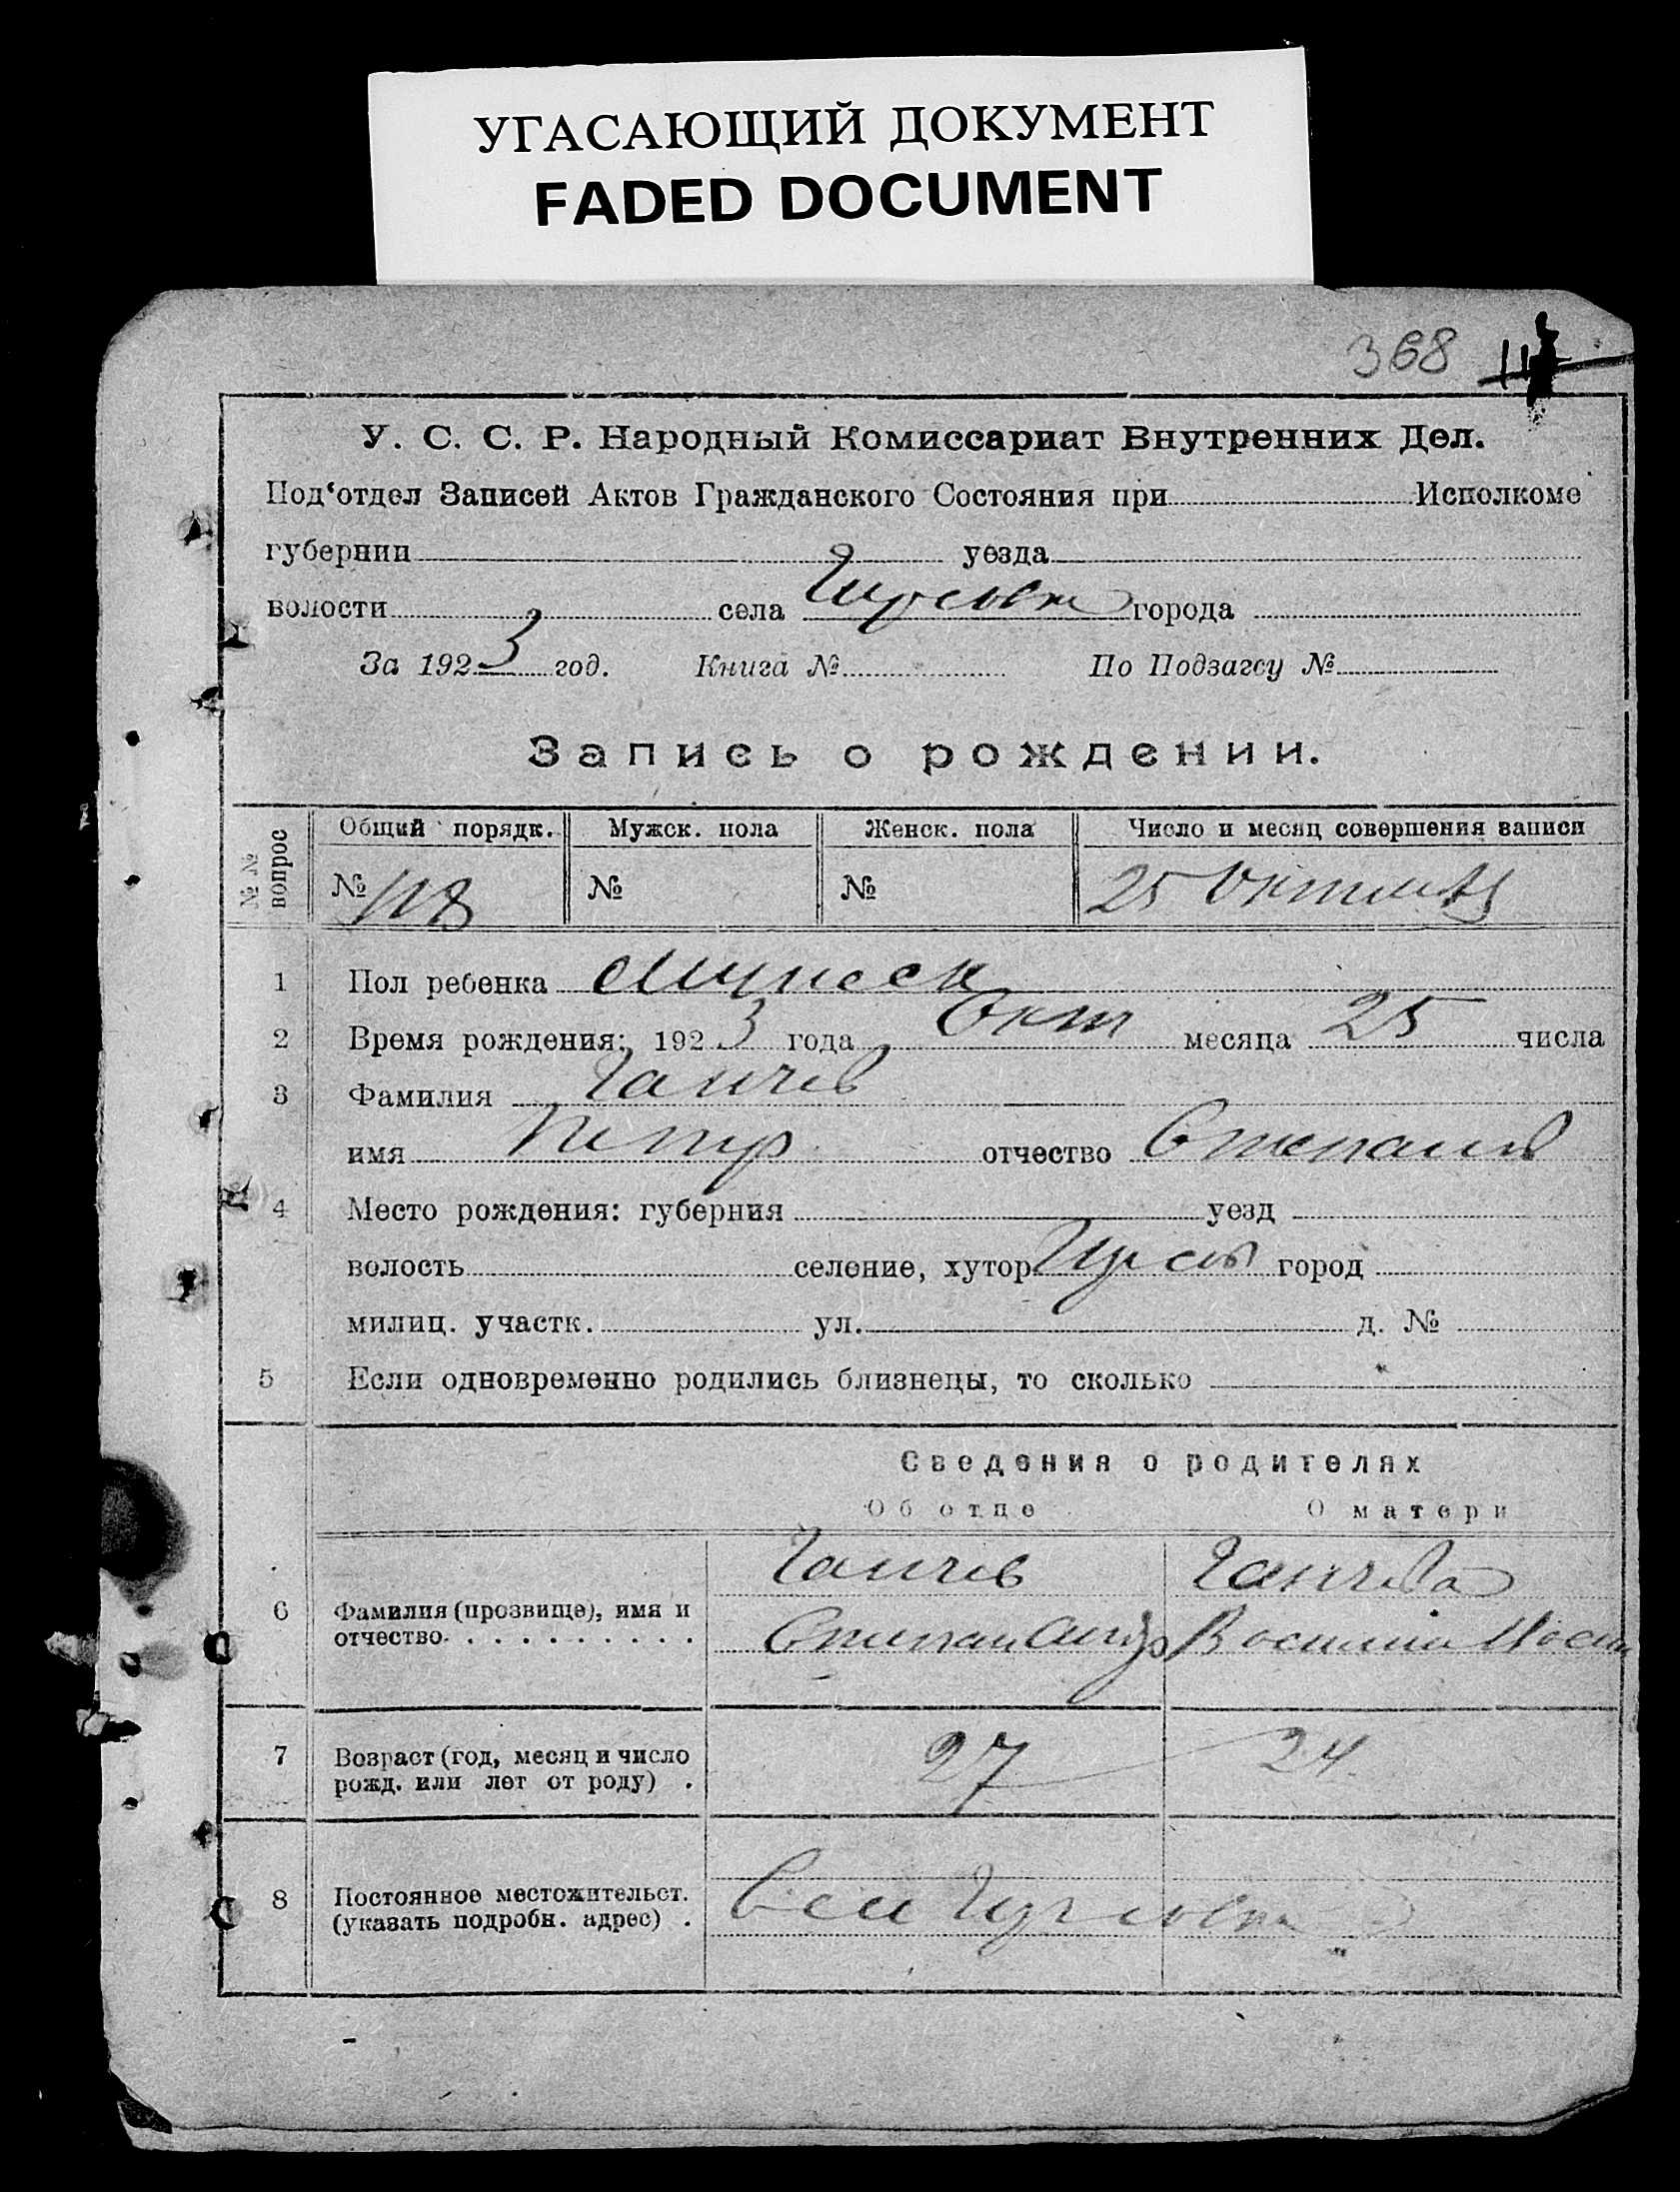 УГАСАЮЩИЙ ДОКУМЕНТ
FADED DOCUMENT
368
У. С. С. Р. Народный Комиссариат Внутренних Дел.
Под‘отдел Записей Актов Гражданского Состояния при Исполкоме
губернии уезда
волости села города
За 1923 год. Книга № По Подзагсу №
Запись о рождении.
№№ вопрос
Общий порядк. Мужск. пола Женск. пола Число и месяц совершения записи
№ 118 № № 25 Октября
1 Пол ребенка Мужеск
2 Время рождения: 1923 года Окт месяца 25 числа
3 Фамилия Ганчев
имя Петр отчество Степанов
4 Место рождения: губерния уезд
волость селение, хутор город
милиц. участк. ул. д. №
5 Если одновременно родились близнецы, то сколько
Сведения о родителях
Об отце О матери
Ганчев Ганчева
6 Фамилия (прозвище), имя и
отчество Степан Андр
7 Возраст (год, месяц и число
рожд. или лет от роду) . 27 24
8 Постоянное местожительст.
(указать подробн. адрес) .